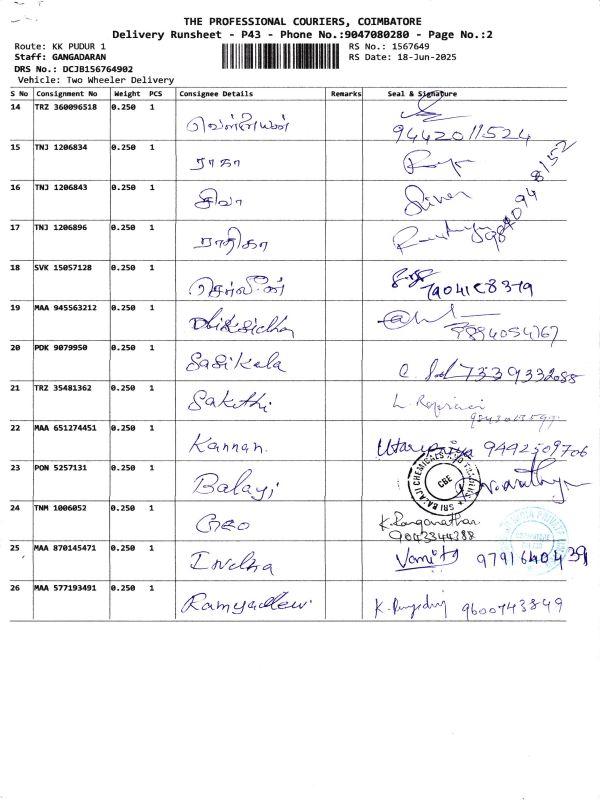 THE PROFESSIONAL COURIERS, COIMBATORE
Delivery Runsheet - P43 - Phone No.:9047080280 - Page No.:2
Route: KK PUDUR 1
RS No.: 1567649
Staff: GANGADARAN
RS Date: 18-Jun-2025
DRS No.: DCJB156764902
Vehicle: Two Wheeler Delivery
S No Consignment No Weight PCS Consignee Details Remarks Seal & Signature
14 TRZ 360096518 0.250 1 9442011524
15 TNJ 1206834 0.250 1 ராகா
16 TNJ 1206843 0.250 1 சிவா
17 TNJ 1206896 0.250 1 ராதிகா
18 SVK 15057128 0.250 1
19 MAA 945563212 0.250 1
20 PDK 9079950 0.250 1 Sasikala 7339332085
21 TRZ 35481362 0.250 1 Sakthi
22 MAA 651274451 0.250 1 Kannan. 9442509706
23 PON 5257131 0.250 1 Balaji
SRI BALAJI CHEMICALS AND TRADERS
CBE
24 TNM 1006052 0.250 1 GEO K. Ranganathan
9043344388
25 MAA 870145471 0.250 1 9791640439
26 MAA 577193491 0.250 1 Ramyadevi 9600743849